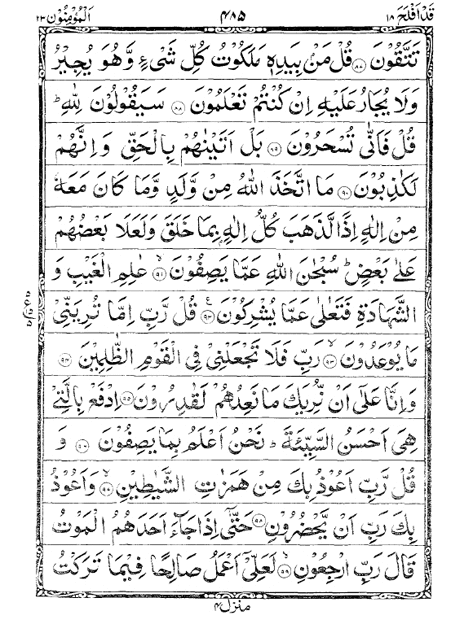 قَدْ اَفْلَحَ ١٨ ٤٨٥ اَلْمُؤْمِنُوْن ٢٣
تَتَّقُوْنَ ۝ قُلْ مَنْۢ بِيَدِهٖ مَلَكُوْتُ كُلِّ شَىْءٍ وَّهُوَ يُجِيْرُ
وَلَا يُجَارُ عَلَيْهِ اِنْ كُنْتُمْ تَعْلَمُوْنَ ۝ سَيَقُوْلُوْنَ لِلّٰهِ ؕ
قُلْ فَاَنّٰى تُسْحَرُوْنَ ۝ بَلْ اَتَيْنٰهُمْ بِالْحَقِّ وَاِنَّهُمْ
لَكٰذِبُوْنَ ۝ مَا اتَّخَذَ اللّٰهُ مِنْ وَّلَدٍ وَّمَا كَانَ مَعَهٗ
مِنْ اِلٰهٍ اِذًا لَّذَهَبَ كُلُّ اِلٰهٍۢ بِمَا خَلَقَ وَلَعَلَا بَعْضُهُمْ
عَلٰى بَعْضٍ ؕ سُبْحٰنَ اللّٰهِ عَمَّا يَصِفُوْنَ ۝ عٰلِمِ الْغَيْبِ وَ
الشَّهَادَةِ فَتَعٰلٰى عَمَّا يُشْرِكُوْنَ ۝ قُلْ رَّبِّ اِمَّا تُرِيَنِّىْ
مَا يُوْعَدُوْنَ ۝ رَبِّ فَلَا تَجْعَلْنِىْ فِى الْقَوْمِ الظّٰلِمِيْنَ ۝
وَاِنَّا عَلٰٓى اَنْ نُّرِيَكَ مَا نَعِدُهُمْ لَقٰدِرُوْنَ ۝ اِدْفَعْ بِالَّتِىْ
هِىَ اَحْسَنُ السَّيِّئَةَ ؕ نَحْنُ اَعْلَمُ بِمَا يَصِفُوْنَ ۝ وَ
قُلْ رَّبِّ اَعُوْذُ بِكَ مِنْ هَمَزٰتِ الشَّيٰطِيْنِ ۝ وَاَعُوْذُ
بِكَ رَبِّ اَنْ يَّحْضُرُوْنِ ۝ حَتّٰٓى اِذَا جَآءَ اَحَدَهُمُ الْمَوْتُ
قَالَ رَبِّ ارْجِعُوْنِ ۝ لَعَلِّىْٓ اَعْمَلُ صَالِحًا فِيْمَا تَرَكْتُ
منزل ٤